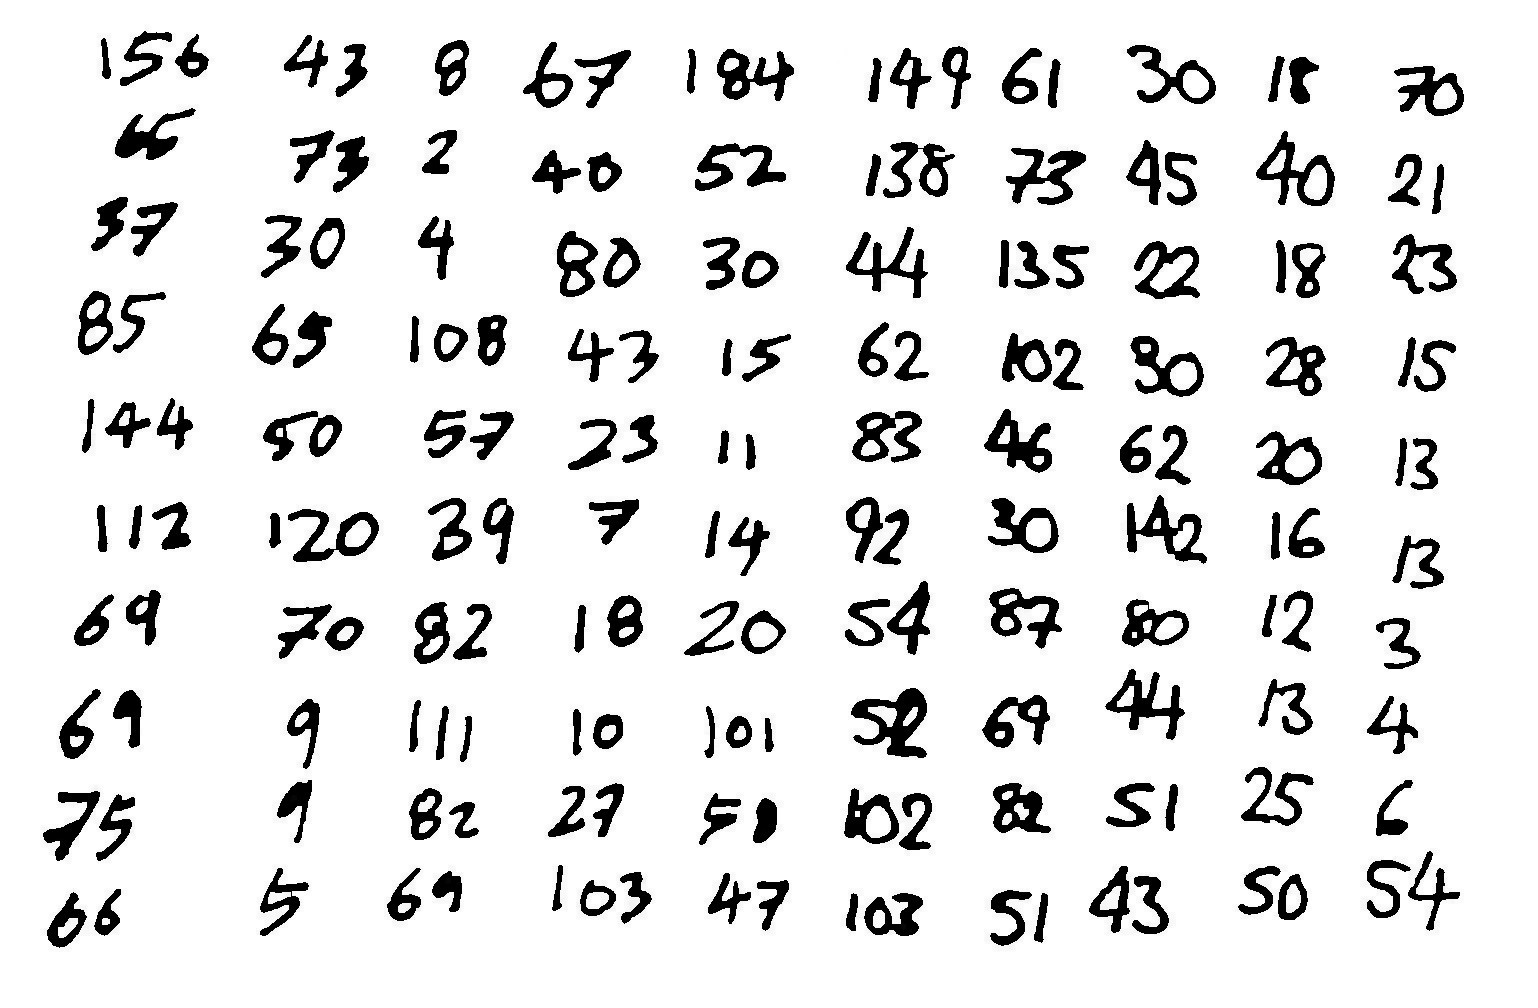 156 43 8 67 184 149 61 30 18 70
66 73 2 40 52 138 73 45 40 21
37 30 4 80 30 44 135 22 18 23
85 65 108 43 15 62 102 30 28 15
144 50 57 23 11 83 46 62 20 13
112 120 39 7 14 92 30 142 16 13
69 70 82 18 20 54 87 80 12 3
69 9 111 10 101 52 69 44 13 4
75 9 82 27 102 82 51 25 6
66 5 69 103 47 103 51 43 50 54